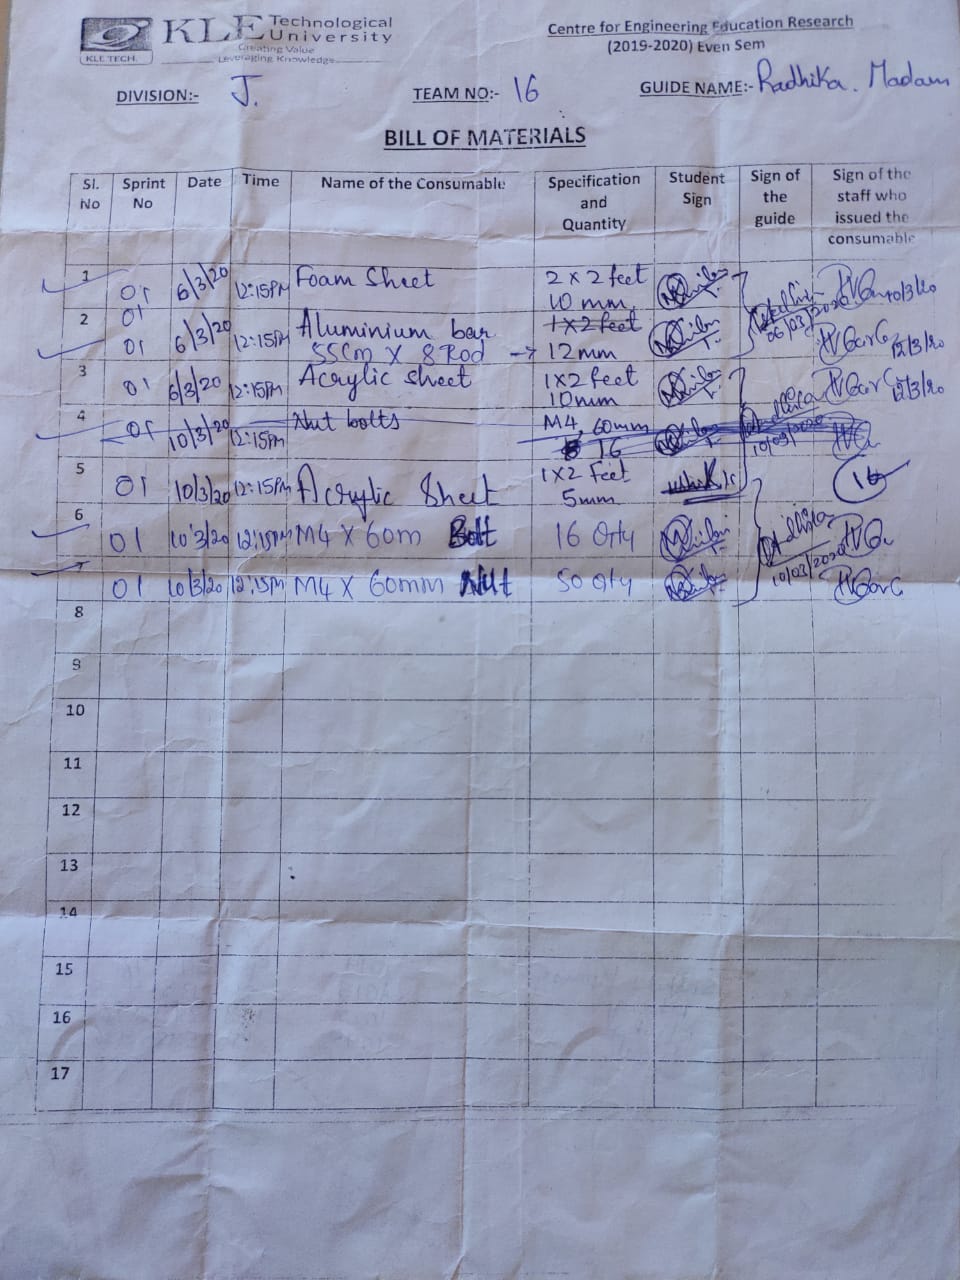 KLE Technological University
Creating Value
Leveraging Knowledge
KLE TECH.
Centre for Engineering Education Research
(2019-2020) Even Sem
DIVISION:- J.
TEAM NO:- 16
GUIDE NAME:- Radhika. Madam
BILL OF MATERIALS
Sl. No Sprint No Date Time Name of the Consumable Specification and Quantity Student Sign Sign of the guide Sign of the staff who issued the consumable
1 01 6/3/20 12:15PM Foam Sheet 2 x 2 feet 10 mm 10/3/20
06/03/2020
2 01 01 6/3/20 12:15PM Aluminium bar 1x2 feet
55Cm X 8 Rod → 12mm 12/3/20
3 01 6/3/20 12:15PM Acrylic sheet 1x2 feet 10mm 12/3/20
4 01 10/3/20 12:15PM Nut bolts M4, 60mm 16
10/03/2020
5 01 10/3/20 12:15PM Acrylic Sheet 1x2 Feet 5mm 16
6 01 10/3/20 12:15PM M4 X 60m Bolt 16 Qty
10/03/2020
7 01 10/3/20 12:15PM M4 X 60mm Nut 50 Qty
8
9
10
11
12
13
14
15
16
17